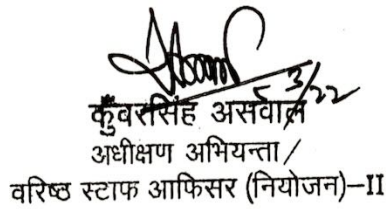 5/3/22
कुँवरसिंह असवाल
अधीक्षण अभियन्ता/
वरिष्ठ स्टाफ आफिसर (नियोजन)-II